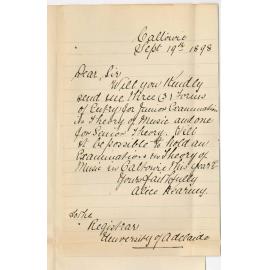 Callowie
Sept 19th 1898
Dear Sir
Will you Kindly
send me three (3) Forms
of Entry for Junior Examination
in Theory of Music and one
for Senior Theory. Will
it be possible to hold an
Examination in Theory of
Music in Callowie this year?
Yours faithfully
Alice Kearney.
To the
Registrar
University of Adelaide